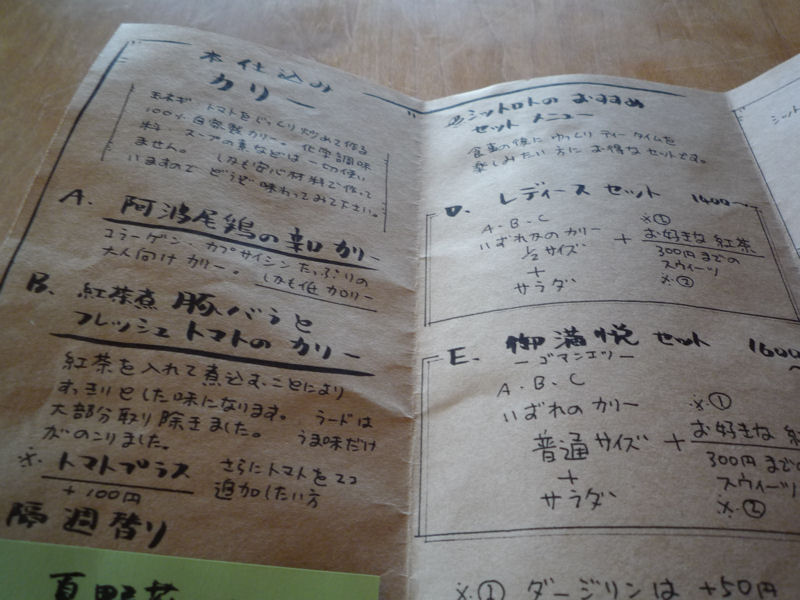 本仕込み
カリー
玉ネギ、トマトをじっくり炒めて作る
100%自然製カリー。化学調味
料、スープの素などは一切使い
ません。 しかも安心材料で作って
いますので どうぞ味わってみて下さい。
A. 阿波尾鶏の辛口カリー
コラーゲン、カプサイシンたっぷりの
大人向けカリー。 しかも低カロリー
B. 紅茶煮 豚バラと
フレッシュトマトのカリー
紅茶を入れて煮込むことにより
すっきりとした味になります。 ラードは
大部分取り除きました。 うま味だけ
がのこりました。
※. トマトプラス さらにトマトを2コ
+100円 追加したい方
隔週替り
夏野菜
シットロトのおすすめ
セットメニュー
食事の後に ゆっくり ティータイムを
楽しみたい方に お得なセットです。
D. レディースセット 1400〜
A・B・C
いずれかのカリー
1/2サイズ
+
サラダ
+
※①
お好きな紅茶
300円までの
スウィーツ
※②
E. 御満悦セット 1600〜
ーゴマンエツー
A・B・C
いずれのカリー
普通サイズ
+
サラダ
+
※①
お好きな紅
300円までの
スウィーツ
※②
※① ダージリンは +50円
シット